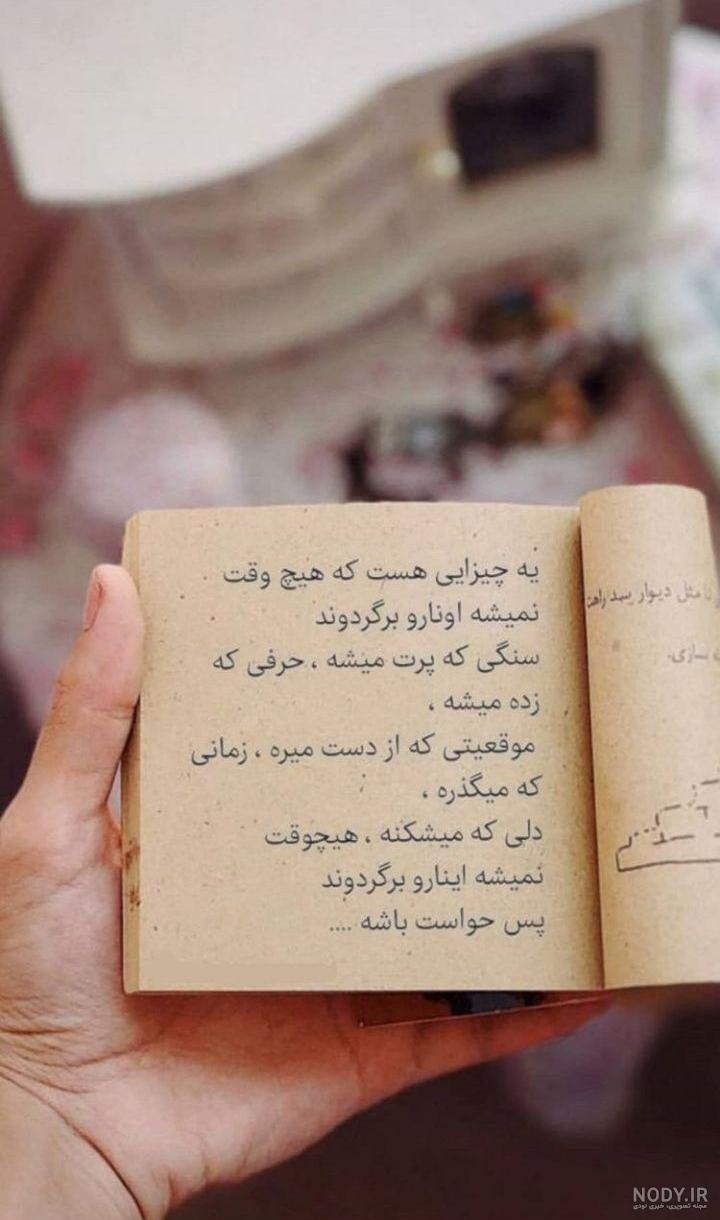 یه چیزایی هست که هیچ وقت
نمیشه اونارو برگردوند
سنگی که پرت میشه ، حرفی که
زده میشه ،
موقعیتی که از دست میره ، زمانی
که میگذره ،
دلی که میشکنه ، هیچوقت
نمیشه اینارو برگردوند
پس حواست باشه ....
مثل دیوار سد راهت
سازی.
NODY.IR
مجله تصویری، خبری نودی